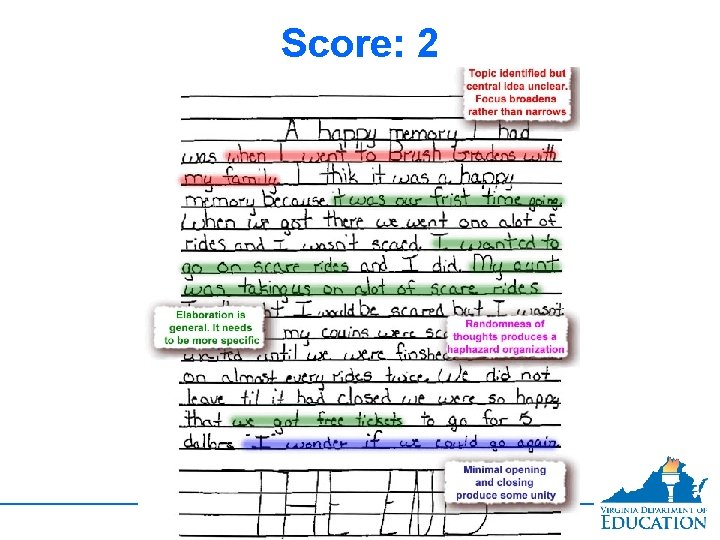 Score: 2
Topic identified but
central idea unclear.
Focus broadens
rather than narrows
A happy memory I had
was when I went to Brush Gradens with
my family. I thik it was a happy
memory because it was our frist time going.
When we got there we went ono alot of
rides and I wasn't scaed. I wanted to
go on scare rides and I did. My aunt
was taking us on alot of scare rides
I would be scared but I wasnt
my couins were
until we were finshed
on almost every rides twice. We did not
leave til it had closed we were so happy
that we got free tickets to go for 5
dollars. I wonder if we could go again.
THE END
Elaboration is
general. It needs
to be more specific
Randomness of
thoughts produces a
haphazard organization
Minimal opening
and closing
produce some unity
VIRGINIA DEPARTMENT OF
EDUCATION